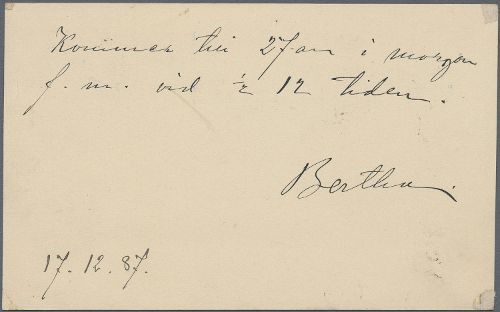 Kommer till 27an i morgon
f. m. vid ½ 12 tiden.
Bertha.
17. 12. 87.